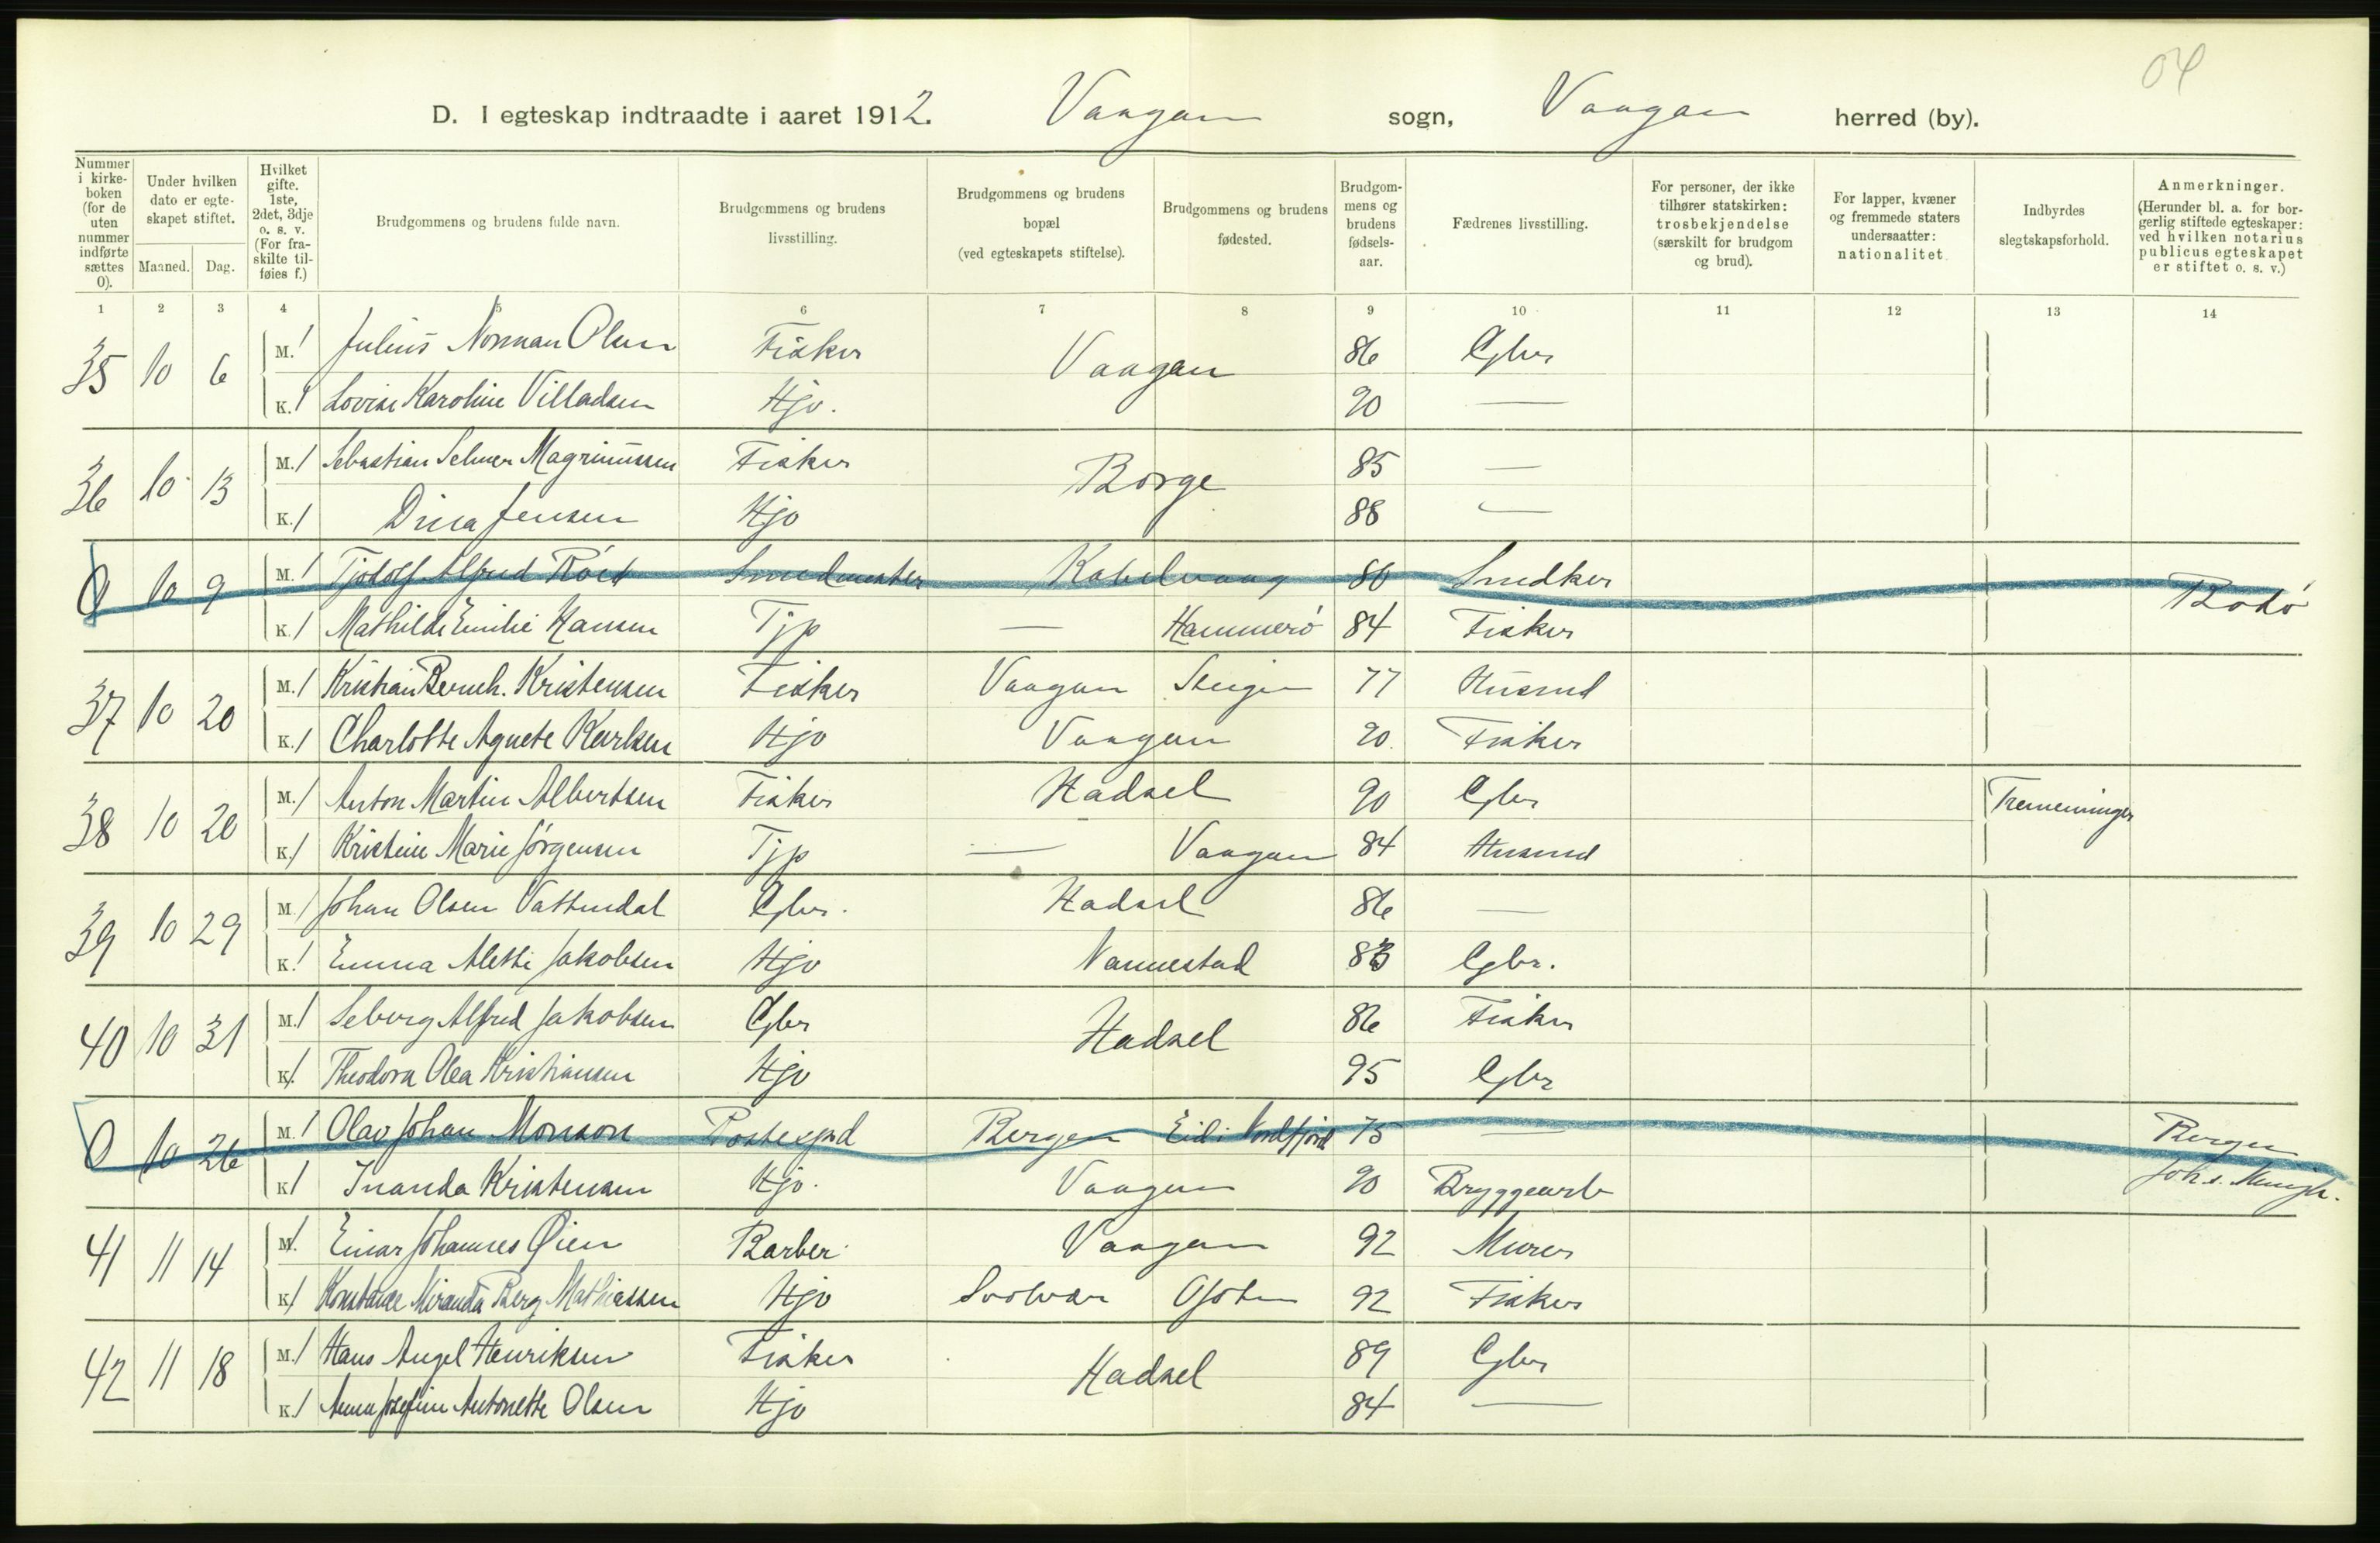 04
D. I egteskap indtraadte i aaret 1912. Vaagan sogn, Vaagan herred (by).
Nummer i kirkeboken (for de uten nummer indførte sættes 0). Under hvilken dato er egteskapet stiftet. Maaned. Dag. Hvilket gifte. 1ste, 2det, 3dje o. s. v. (For fraskilte tilføies f.) Brudgommens og brudens fulde navn. Brudgommens og brudens livsstilling. Brudgommens og brudens bopæl (ved egteskapets stiftelse). Brudgommens og brudens fødested. Brudgommens og brudens fødselsaar. Fædrenes livsstilling. For personer, der ikke tilhører statskirken: trosbekjendelse (særskilt for brudgom og brud). For lapper, kvæner og fremmede staters undersaatter: nationalitet Indbyrdes slegtskapsforhold. Anmerkninger. (Herunder bl. a. for borgerlig stiftede egteskaper: ved hvilken notarius publicus egteskapet er stiftet o. s. v.)
1 2 3 4 5 6 7 8 9 10 11 12 13 14
35 10 6 M. 1 Julius Norman Olsen Fisker Vaagan 86 Gbr
K. 1 Lovise Karoline Villadsen Hjo. 90 —
36 10 13 M. 1 Sebastian Selmer Magnussen Fisker Borge 85 —
K. 1 Dina Jensen Hjo 88 —
0 10 9 M. 1 Tjodolf Alfred Röed Smedmester Kabelvaag 86 Smedker Bodö
K. 1 Mathilde Emilie Hansen Tjp — Hammerö 84 Fisker
37 10 20 M. 1 Kristian Bernh. Kristensen Fisker Vaagan Steigen 77 Husmd
K. 1 Charlotte Agnete Karlsen Hjo Vaagan 90. Fisker
38 10 20 M. 1 Anton Martin Albertsen Fisker Hadsel 90 Gbr Tremenninger
K. 1 Kristine Marie Jörgensen Tjp — Vaagan 84 Husmd
39 10 29 M. 1 Johan Olsen Vattendal Gbr. Hadsel 86 —
K. 1 Emma Alette Jakobsen Hjo Nannestad 83 Gbr.
40 10 31 M. 1 Seberg Alfred Jakobsen Gbr Hadsel 86 Fisker
K. 1 Theodora Olea Kristiansen Hjo 95 Gbr
0 10 26 M. 1 Olav Johan Monson Postexpd Bergen Eid i Nordfjord 75 — Bergen
K. 1 Inanda Kristensen Hjo. Vaagan 90 Bryggearb Johs.
41 11 14 M. 1 Einar Johannes Øien Barber Vaagan 92 Murer
K. 1 Konstance Miranda Berg Mathiassen Hjo Svolvær 92 Fisker
42 11 18 M. 1 Hans Angel Henriksen Fisker Hadsel 89 Gbr
K. 1 Anna Josefine Antonette Olsen Hjo 84 —